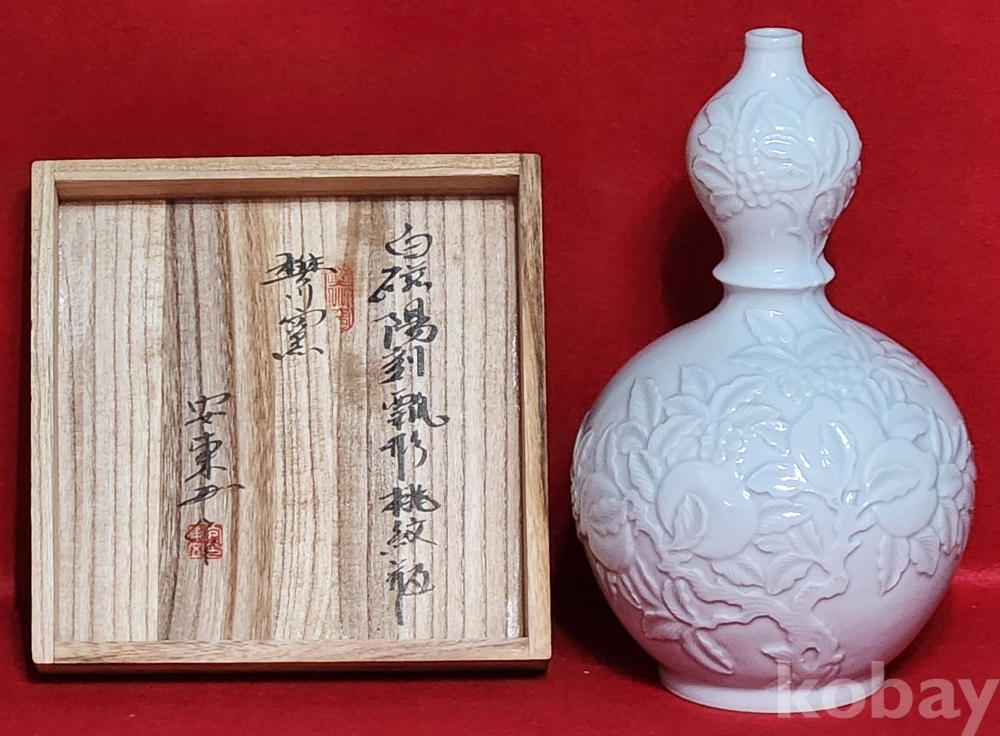 白磁陽刻瓢形桃紋瓶
樊川窯
安東五
kobay